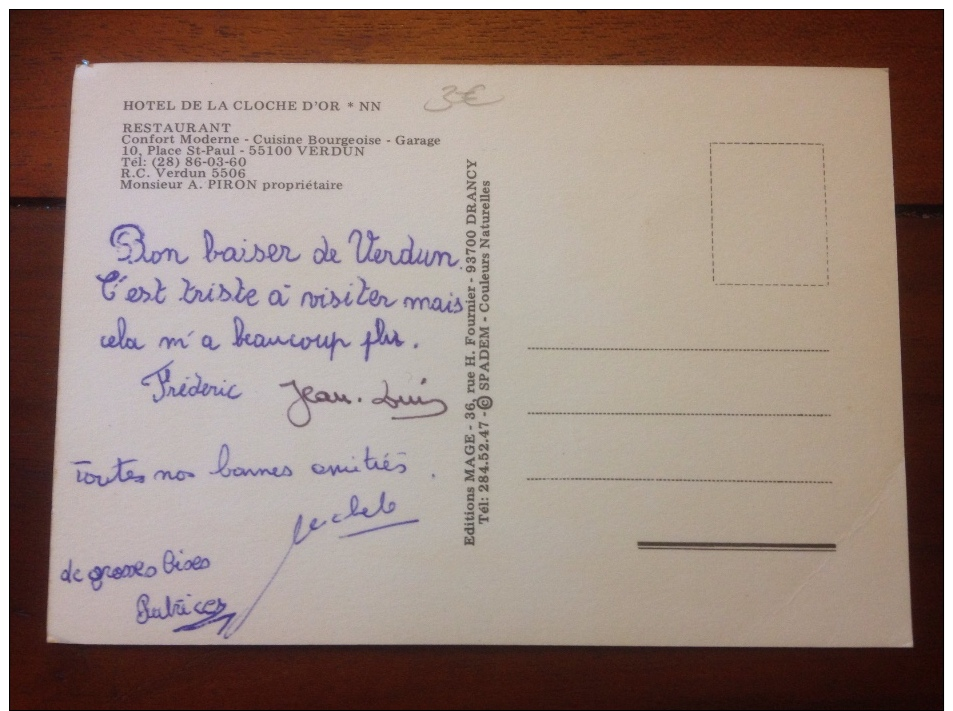 HOTEL DE LA CLOCHE D'OR * NN
3€
RESTAURANT
Confort Moderne - Cuisine Bourgeoise - Garage
10, Place St-Paul - 55100 VERDUN
Tél: (28) 86-03-60
R.C. Verdun 5506
Monsieur A. PIRON propriétaire
Bon baiser de Verdun.
C'est triste à visiter mais
cela m'a beaucoup plu.
Fréderic Jean-Luis
Toutes nos bonnes amitiés.
de grosses bises
Patrice
Editions MAGE - 36, rue H. Fournier - 93700 DRANCY
Tél: 284.52.47 - © SPADEM - Couleurs Naturelles